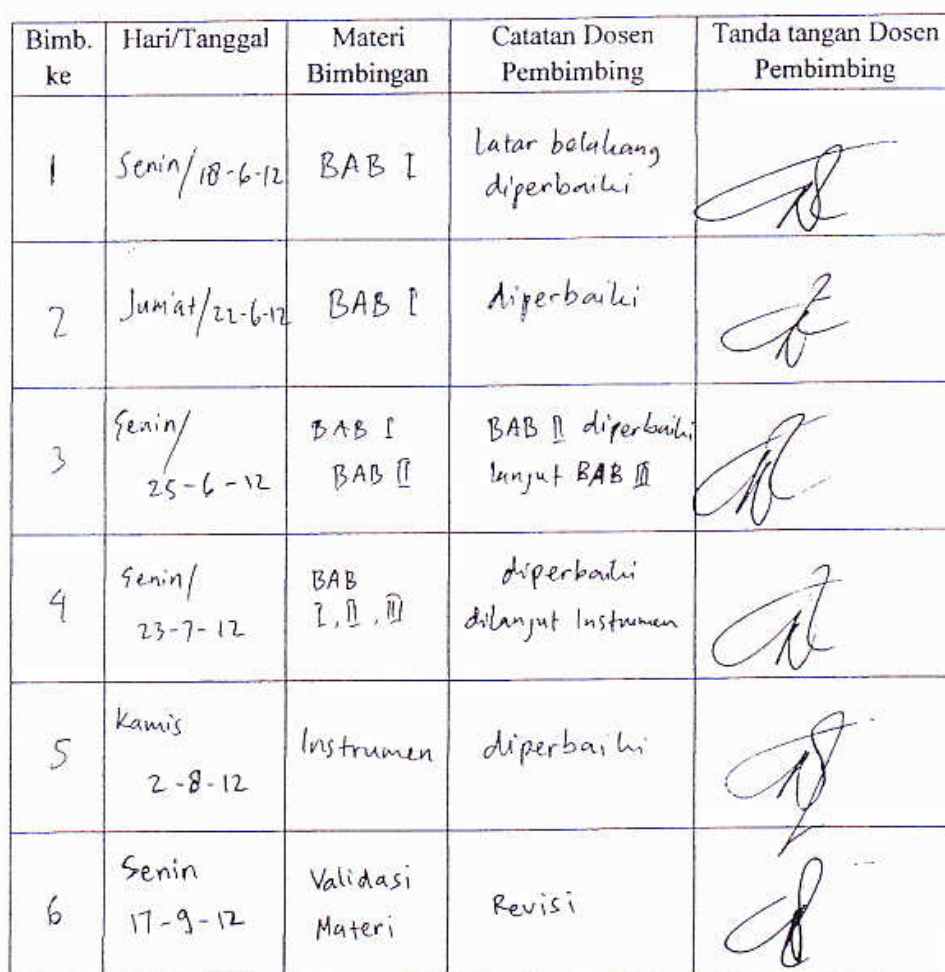 Bimb. ke Hari/Tanggal Materi Bimbingan Catatan Dosen Pembimbing Tanda tangan Dosen Pembimbing
1 Senin/18-6-12 BAB I Latar belakang diperbaiki
2 Jum'at/22-6-12 BAB I diperbaiki
3 Senin/ 25-6-12 BAB I BAB II BAB II diperbaiki lanjut BAB III
4 Senin/ 23-7-12 BAB I, II, III diperbaiki dilanjut Instrumen
5 Kamis 2-8-12 Instrumen diperbaiki
6 Senin 17-9-12 Validasi Materi Revisi